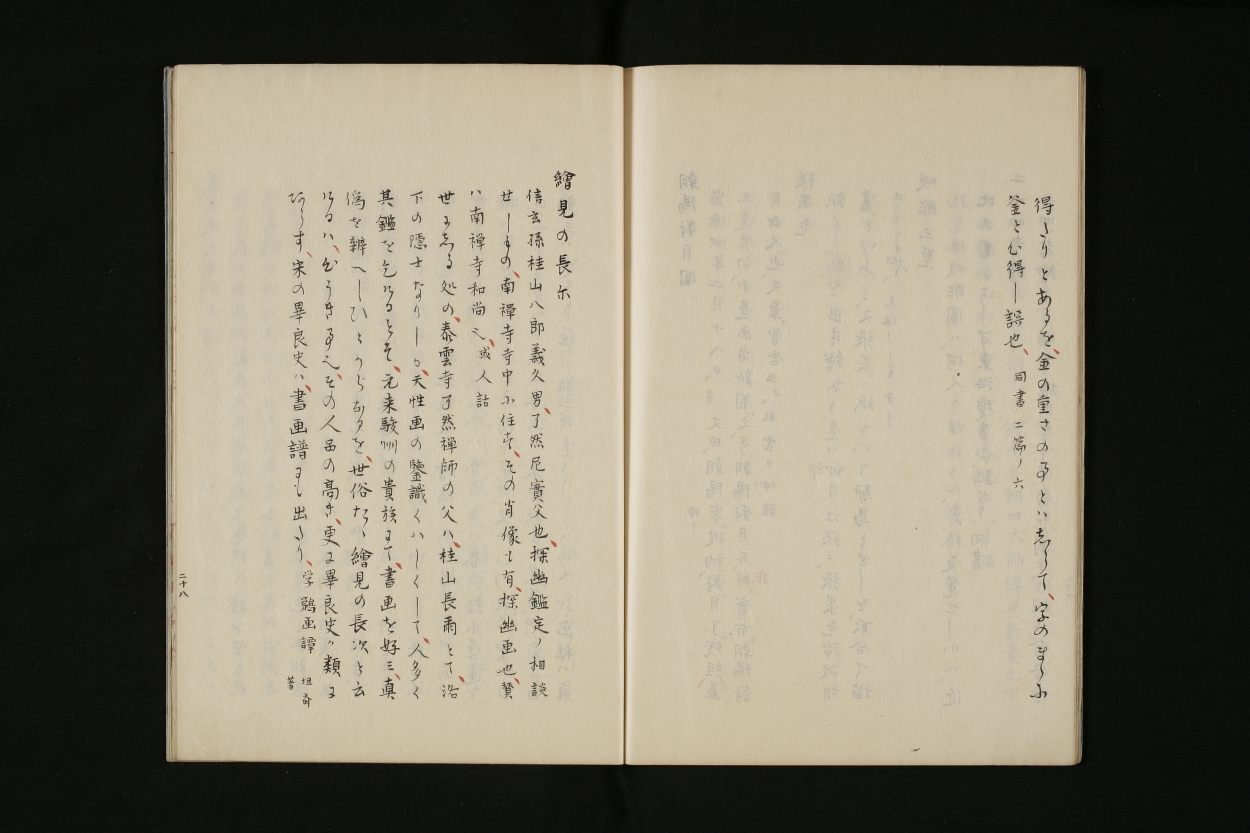 得たりとあるを、金の重さの事とハしらて、字のまゝに
釜とむ得し誤也、同書二篇ノ六
繪見の長尓
信玄孫桂山八郎義久男、了然尼實父也、探幽鑑定ノ相談
せしもの、南禅寺寺中に住す、その肖像も有、探幽画也、賛
ハ南禅寺和尚之、或人話
世にしる処の、泰雲寺了然禅師の父ハ、桂山長爾とて、洛
下の隠士なりしか、天性画の鑒識くハしくして、人多く
其鑑を乞けるとそ、元来駿州の貴族にて、書画を好ミ、真
偽を辨へしひとりらなるを、世俗たゝ繪見の長次と云
けるハ、むつき事也、その人品の高き、更に畢良史か類に
あらす、宋の畢良史ハ、書画譜にも出たり、学鷯画譚 坦斎
著
二十八